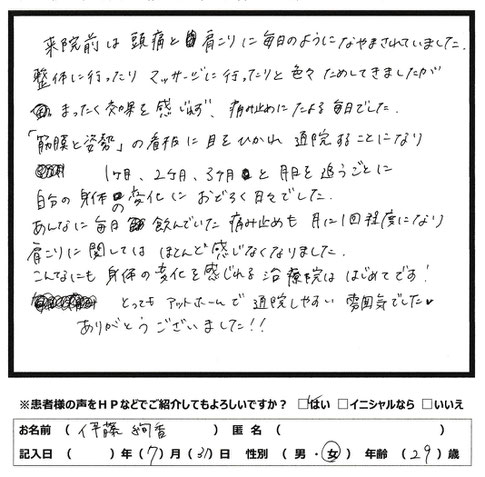 来院前は頭痛と肩こりに毎日のようになやまされていました。
整体に行ったりマッサージに行ったりと色々ためしてきましたが
まったく効果を感じれず、痛み止めにたよる毎日でした。
「筋膜と姿勢」の看板に目をひかれ通院することになり
1ヶ月、2ヶ月、3ヶ月と月日を追うごとに
自分の身体の変化におどろく日々でした。
あんなに毎日飲んでいた痛み止めも月に1回程度になり
肩こりに関してはほとんど感じなくなりました。
こんなにも身体の変化を感じれる治療院ははじめてです!
とってもアットホームで通院しやすい雰囲気でした♥
ありがとうございました!!
※患者様の声をHPなどでご紹介してもよろしいですか? □はい □イニシャルなら □いいえ
お名前 ( 伊藤 絢香 ) 匿名 ( )
記入日 ( )年(7)月(31)日 性別 (男・女) 年齢 (29)歳